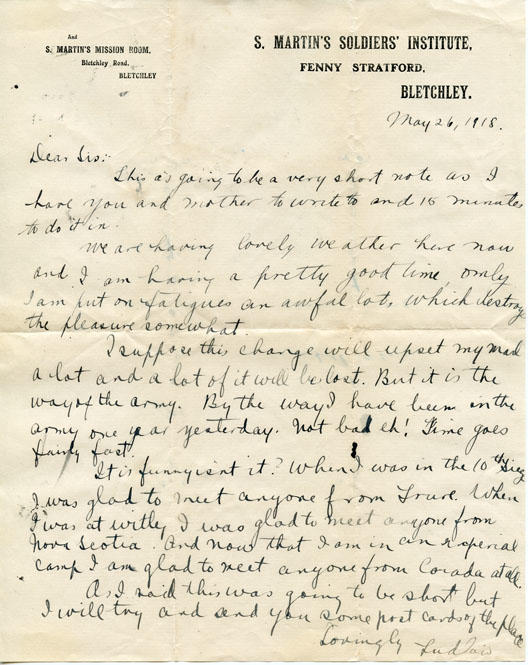 And
S. MARTIN'S MISSION ROOM,
Bletchley Road,
BLETCHLEY
S. MARTIN'S SOLDIERS' INSTITUTE,
FENNY STRATFORD,
BLETCHLEY.
May 26, 1918.
Dear Sis:-
This is going to be a very short note as I
have you and mother to write to and 15 minutes
to do it in.
We are having lovely weather here now
and I am having a pretty good time only
I am put on fatigues an awful lot, which destroys
the pleasure somewhat.
I suppose this change will upset my mail
a lot and a lot of it will be lost. But it is the
way of the army. By the way I have been in the
army one year yesterday. Not bad eh! Time goes
fairly fast.
It is funny isnt it? When I was in the 10th Sieg
I was glad to meet anyone from Truro. When
I was at witley I was glad to meet anyone from
Nova Scotia. And now that I am in an special
camp I am glad to meet anyone from Canada at all.
As I said this was going to be short but
I will try and send you some post cards of the place
Lovingly